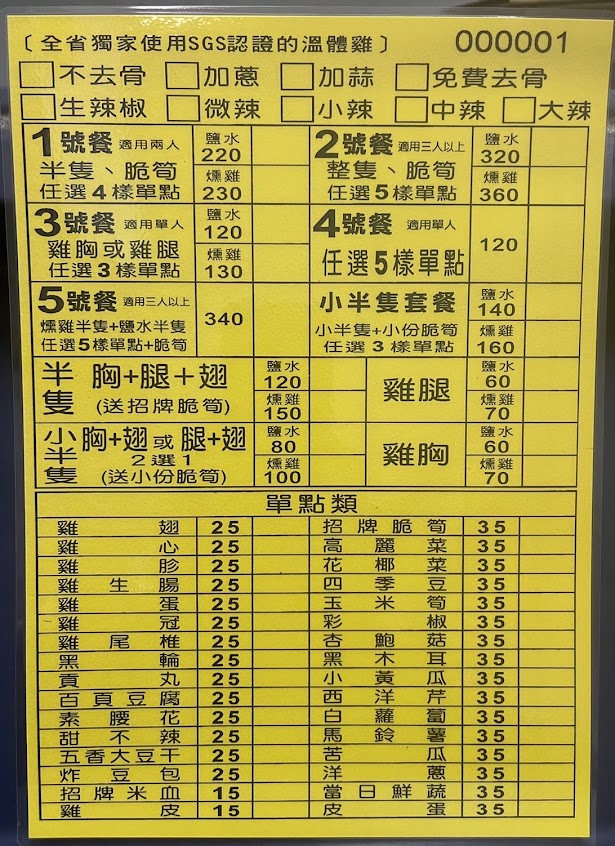 〔全省獨家使用SGS認證的溫體雞〕 000001
不去骨 加蔥 加蒜 免費去骨
生辣椒 微辣 小辣 中辣 大辣
1號餐 適用兩人
半隻、脆筍
任選4樣單點
鹽水 220
燻雞 230
2號餐 適用三人以上
整隻、脆筍
任選5樣單點
鹽水 320
燻雞 360
3號餐 適用單人
雞胸或雞腿
任選3樣單點
鹽水 120
燻雞 130
4號餐 適用單人
任選5樣單點
120
5號餐 適用三人以上
燻雞半隻+鹽水半隻
任選5樣單點+脆筍
340
小半隻套餐
小半隻+小份脆筍
任選3樣單點
鹽水 140
燻雞 160
半隻
胸+腿+翅
(送招牌脆筍)
鹽水 120
燻雞 150
雞腿
鹽水 60
燻雞 70
小半隻
胸+翅或腿+翅
2選1
(送小份脆筍)
鹽水 80
燻雞 100
雞胸
鹽水 60
燻雞 70
單點類
雞翅 25 招牌脆筍 35
雞心 25 高麗菜 35
雞胗 25 花椰菜 35
雞生腸 25 四季豆 35
雞蛋 25 玉米筍 35
雞冠 25 彩椒 35
雞尾椎 25 杏鮑菇 35
黑輪 25 黑木耳 35
貢丸 25 小黃瓜 35
百頁豆腐 25 西洋芹 35
素腰花 25 白蘿蔔 35
甜不辣 25 馬鈴薯 35
五香大豆干 25 苦瓜 35
炸豆包 25 洋蔥 35
招牌米血 15 當日鮮蔬 35
雞皮 15 皮蛋 35